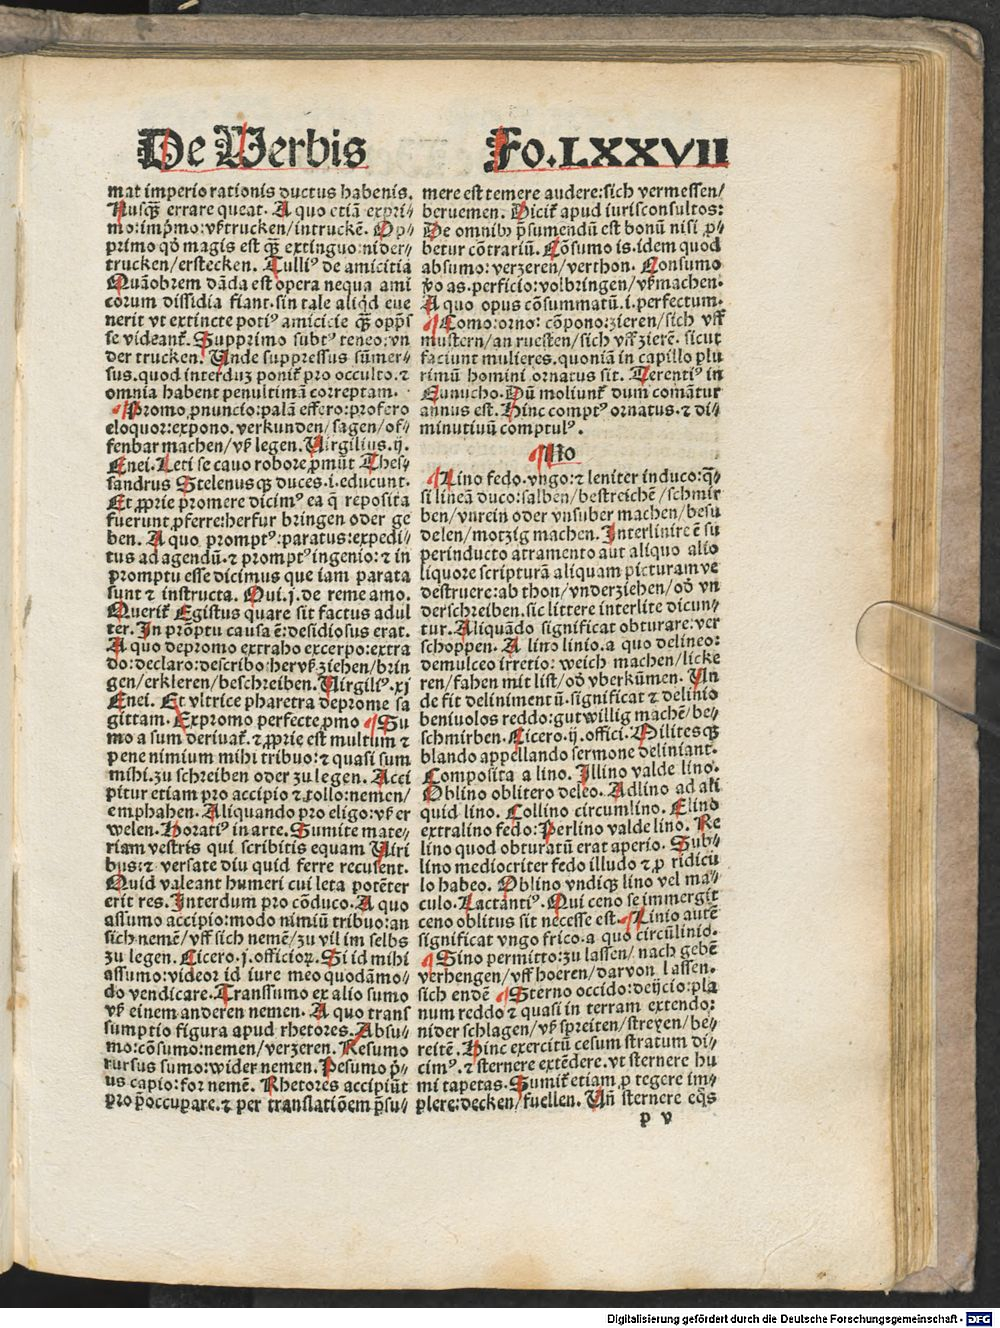 De Verbis
Fo. LXXVII
mat imperio rationis ductus habenis.
Nusqȝ errare queat. A quo etiā expri⸗
mo: imp̄mo: vſztrucken/intruckē. Op⸗
primo qđ magis est qȝ extinguo: nider⸗
trucken/erstecken. Tulliꝰ de amicitia
Quāobrem dāda est opera nequa ami
corum dissidia fiant. sin tale aliqđ eue
nerit vt extincte potiꝰ amicicie qȝ opp̄s
se videant̄. Supprimo subtꝰ teneo: vn
der trucken. Unde suppressus sūmer⸗
sus. quod interduȝ ponit̄ pro occulto. ⁊
omnia habent penultimā correptam.
¶Promo ꝓnuncio: palā effero: profero
eloquor: expono. verkunden/sagen/of⸗
fenbar machen/vſz legen. Virgilius. ij.
Enei. Leti se cauo robore ꝓmūt Thes⸗
sandrus Stelenusqȝ duces. i. educunt.
Et ꝓprie promere dicimꝰ ea q̄ reposita
fuerunt ꝓferre: herfur bringen oder ge
ben. A quo promptꝰ: paratus: expedi⸗
tus ad agendū. ⁊ promptꝰ ingenio: ⁊ in
promptu esse dicimus que iam parata
sunt ⁊ instructa. Oui. j. de reme amo.
Querit̄ Egistus quare sit factus adul
ter. In prōptu causa ē: desidiosus erat.
A quo depromo extraho excerpo: extra
do: declaro: describo: hervſz ziehen/brin
gen/erkleren/beschreiben. Virgiliꝰ. xj
Enei. Et vltrice pharetra deprome sa
gittam. Expromo perfecte ꝓmo ¶Su
mo a sum deriuat̄. ⁊ ꝓprie est multum ⁊
pene nimium mihi tribuo: ⁊ quasi sum
mihi. zu schreiben oder zu legen. Acci
pitur etiam pro accipio ⁊ tollo: nemen/
emphahen. Aliquando pro eligo: vſz er
welen. Horatiꝰ in arte. Sumite mate⸗
riam vestris qui scribitis equam Viri
bus: ⁊ versate diu quid ferre recusent.
Quid valeant humeri cui leta potēter
erit res. Interdum pro cōduco. A quo
assumo accipio: modo nimiū tribuo: an
sich nemē/vff sich nemē/zu vil im selbs
zu legen. Cicero. j. officioꝝ. Si id mihi
assumo: videor id iure meo quodāmo⸗
do vendicare. Transsumo ex alio sumo
vſz einem anderen nemen. A quo trans
sumptio figura apud rhetores. Absu⸗
mo: cōsumo: nemen/verzeren. Resumo
rursus sumo: wider nemen. Presumo p̄⸗
us capio: for nemē. Rhetores accipiūt
pro p̄occupare. ⁊ per translatiōem p̄su⸗
mere est temere audere: sich vermessen/
beruemen. Dicit̄ apud iurisconsultos:
De omnibꝰ p̄sumendū est bonū nisi ꝓ⸗
betur cōtrariū. Cōsumo is. idem quod
absumo: verzeren/verthon. Consumo
vo as. perficio: volbringen/vſzmachen.
A quo opus cōsummatū. i. perfectum.
¶Como: orno: cōpono: zieren/sich vff
mustern/an ruesten/sich vſz zierē. sicut
faciunt mulieres. quoniā in capillo plu
rimū homini ornatus sit. Terentiꝰ in
Eunucho. Dū moliunt̄ dum comātur
annus est. Hinc comptꝰ ornatus. ⁊ di⸗
minutiuū comptulꝰ.
¶No
¶Lino fedo. vngo: ⁊ leniter induco: q̄⸗
si lineā duco: salben/bestreichē/schmir
ben/vnrein oder vnsuber machen/besu
delen/motzig machen. Interlinire ē su
perinducto atramento aut aliquo alio
liquore scripturā aliquam picturam ve
destruere: ab thon/vnderziehen/ođ vn
derschreiben. sic littere interlite dicun⸗
tur. Aliquādo significat obturare: ver
schoppen. A lino linio. a quo delineo:
demulceo irretio: weich machen/licke
ren/fahen mit list/ođ vberkūmen. Un
de fit deliniment ū. significat ⁊ delinio
beniuolos reddo: gutwillig machē/be⸗
schmirben. Cicero. ij. offici. Militesqȝ
blando appellando sermone deliniant.
Composita a lino. Illino valde lino.
Oblino oblitero deleo. Adlino ad ali
quid lino. Collino circumlino. Elino
extralino fedo: Perlino valde lino. Re
lino quod obturatū erat aperio. Sub⸗
lino mediocriter fedo illudo ⁊ ꝓ ridicu
lo habeo. Oblino vndiqȝ lino vel ma⸗
culo. Lactantiꝰ. Qui ceno se immergit
ceno oblitus sit necesse est. ¶Linio autē
significat vngo frico. a quo circūlinio.
¶Sino permitto: zu lassen/nach gebē
verhengen/vff hoeren/darvon lassen.
sich endē ¶Sterno occido: deijcio: pla
num reddo ⁊ quasi in terram extendo:
nider schlagen/vſz spreiten/streyen/be⸗
reitē. Hinc exercitū cesum stratum di⸗
cimꝰ. ⁊ sternere extēdere. vt sternere hu
mi tapetas. Sumit̄ etiam ꝓ tegere im⸗
plere: decken/fuellen. Vn̄ sternere eq̄s
p v
Digitalisierung gefördert durch die Deutsche Forschungsgemeinschaft - DFG